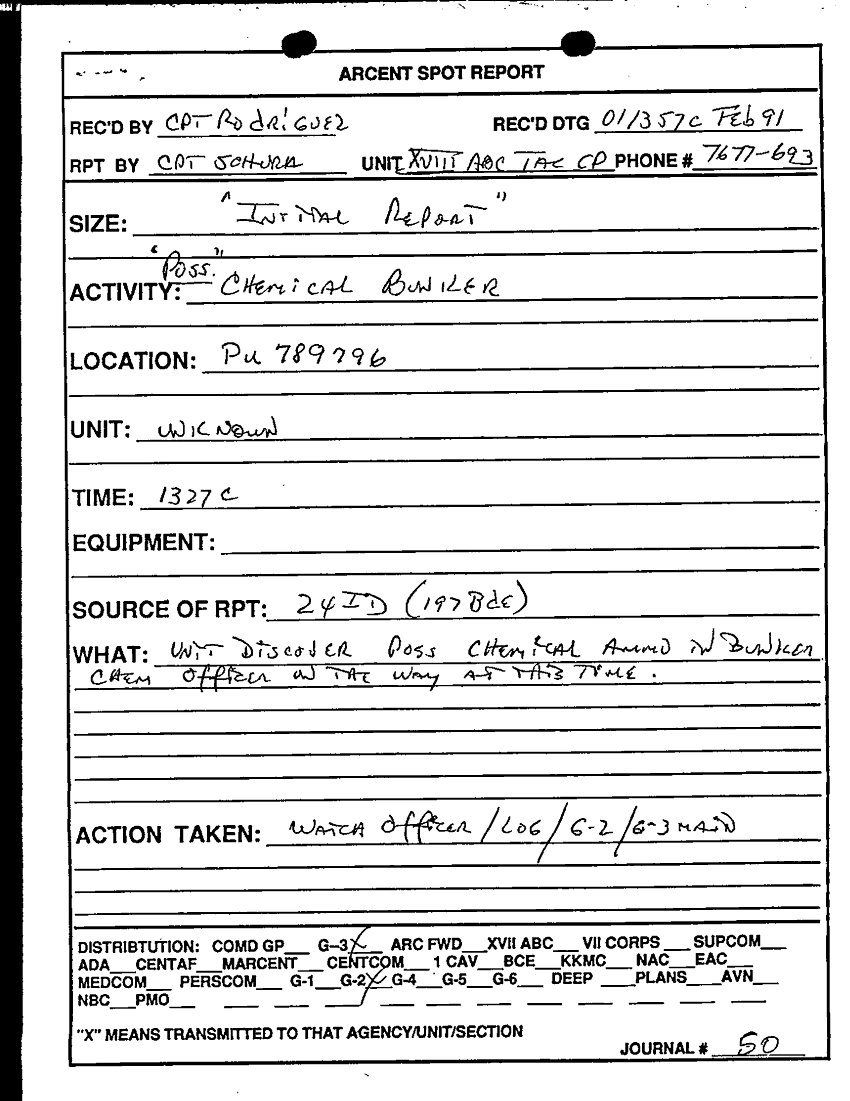 ARCENT SPOT REPORT
REC'D BY CPT RodRiGUEZ REC'D DTG 011357C Feb 91
RPT BY CPT UNIT XVIII ABC TAC CP PHONE # 7677-693
SIZE: "INITIAL REPORT"
"Poss."
ACTIVITY: CHEMiCAL BUNKER
LOCATION: PU 789796
UNIT: UNKNOWN
TIME: 1327 C
EQUIPMENT:
SOURCE OF RPT: 24 ID (197 Bde)
WHAT: UNiT DiscovER Poss CHEMiCAL AMMO iN BUNKER
CHEM OffICER ON THE WAY AT THIS TIME.
ACTION TAKEN: WATCH OffICER / LOG / G-2 / G-3 MAIN
DISTRIBTUTION: COMD GP___ G–3_X_ ARC FWD___XVII ABC___ VII CORPS ___ SUPCOM___
ADA___CENTAF___MARCENT___CENTCOM___1 CAV___BCE___KKMC___NAC___EAC___
MEDCOM___ PERSCOM___ G-1___G-2_X_G-4___G-5___G-6___ DEEP ___PLANS___AVN___
NBC___PMO___ ___ ___ ___ ___ ___ ___ ___ ___ ___ ___
"X" MEANS TRANSMITTED TO THAT AGENCY/UNIT/SECTION
JOURNAL # 50